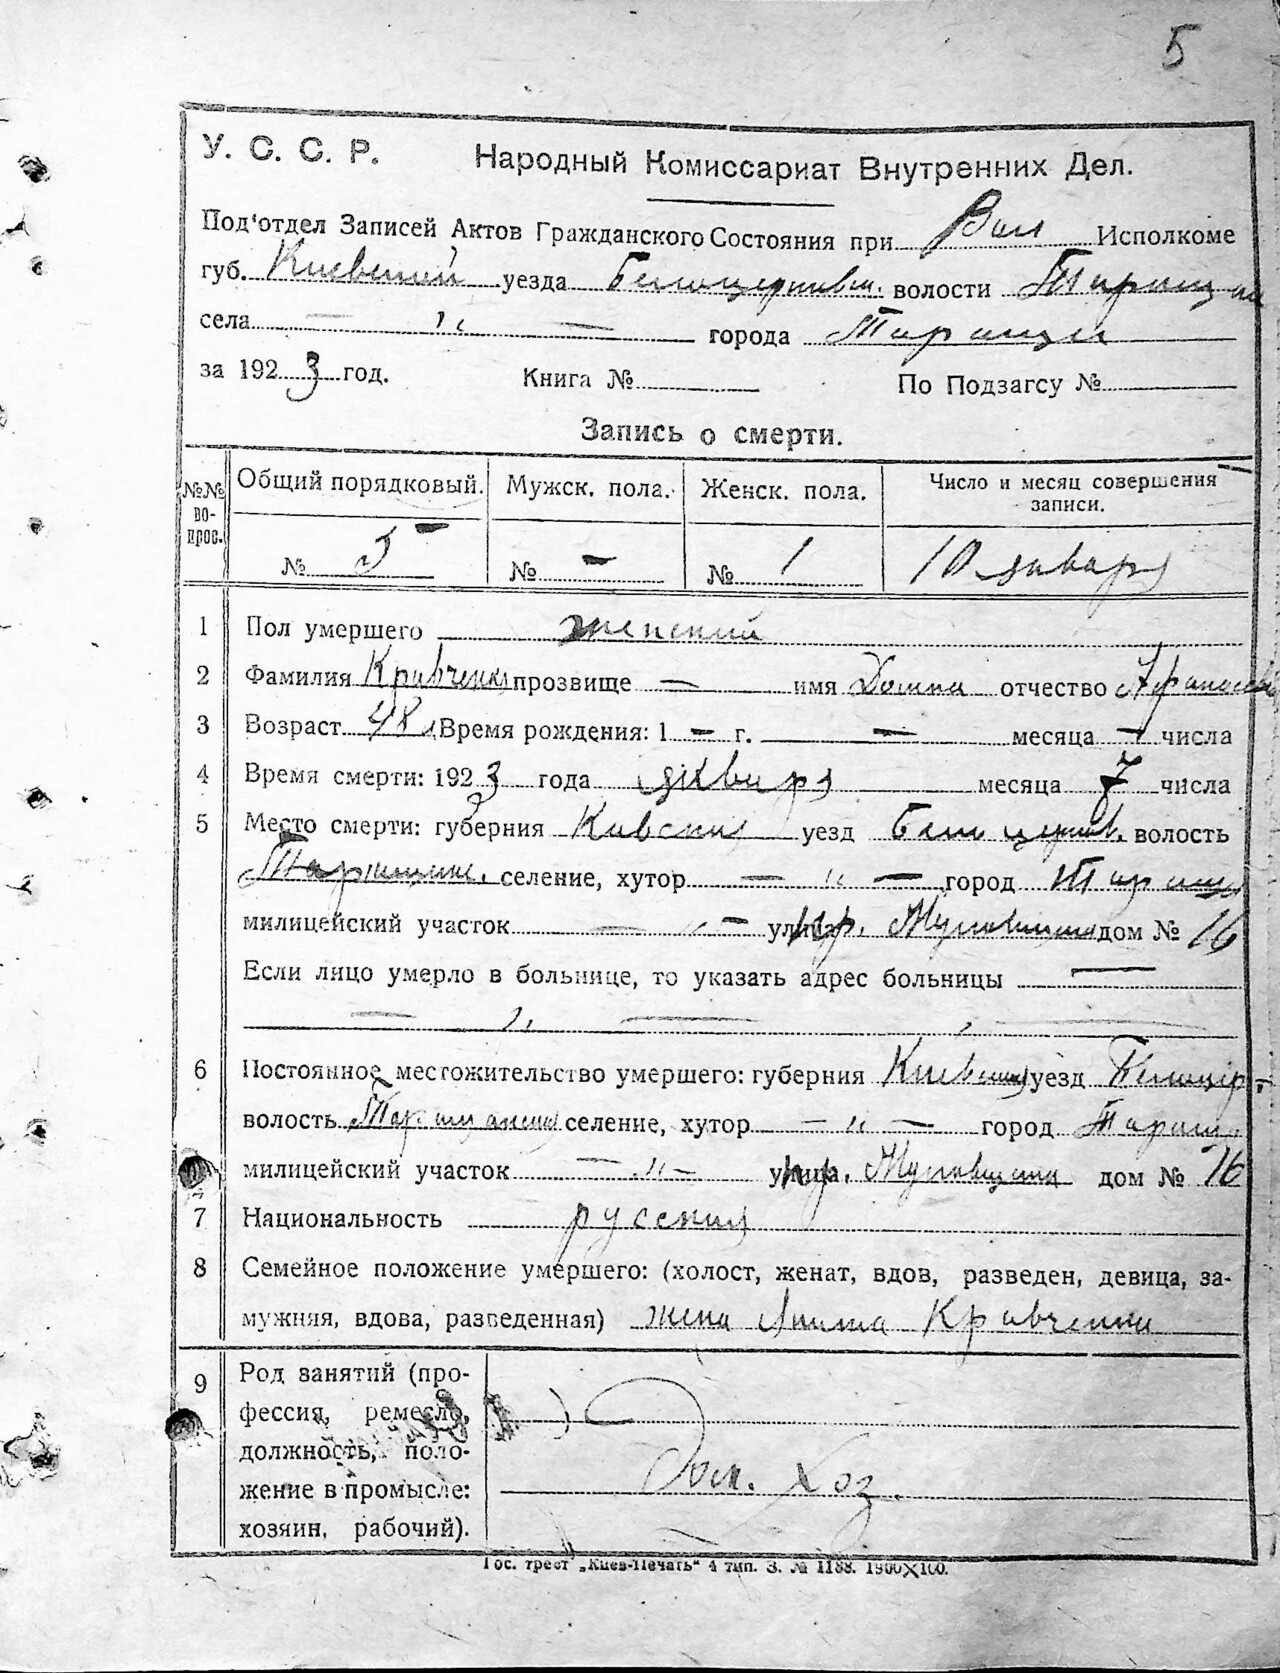 5
У. С. С. Р. Народный Комиссариат Внутренних Дел.
Под'отдел Записей Актов Гражданского Состояния при Вол Исполкоме
губ. Киевской уезда Белоцерковск. волости Таращан
села — „ — города Таращи
за 1923 год. Книга № По Подзагсу №
Запись о смерти.
№№ вопрос. Общий порядковый. Мужск. пола. Женск. пола. Число и месяц совершения записи.
№ 5 № — № 1 10 января
1 Пол умершего женский
2 Фамилия Кравченко прозвище — имя Домна отчество Афанасьев
3 Возраст 48 л Время рождения: 1 — г. — месяца — числа
4 Время смерти: 1923 года января месяца 7 числа
5 Место смерти: губерния Киевская уезд Белоцерков. волость
Таращанс. селение, хутор — „ — город Таращ
милицейский участок — „ — улица дом № 16
Если лицо умерло в больнице, то указать адрес больницы —
— „ — „ —
6 Постоянное местожительство умершего: губерния Киевская уезд Белоцер.
волость Таращанская селение, хутор — „ — город Таращ
милицейский участок — „ — улица дом № 16
7 Национальность русская
8 Семейное положение умершего: (холост, женат, вдов, разведен, девица, за-
мужняя, вдова, разведенная) жена Кравченка
9 Род занятий (про-
фессия, ремесло,
должность, поло-
жение в промысле:
хозяин, рабочий).
Дом. хоз.
Гос. трест „Киев-Печать" 4 тип. З. № 1188. 1900Х100.